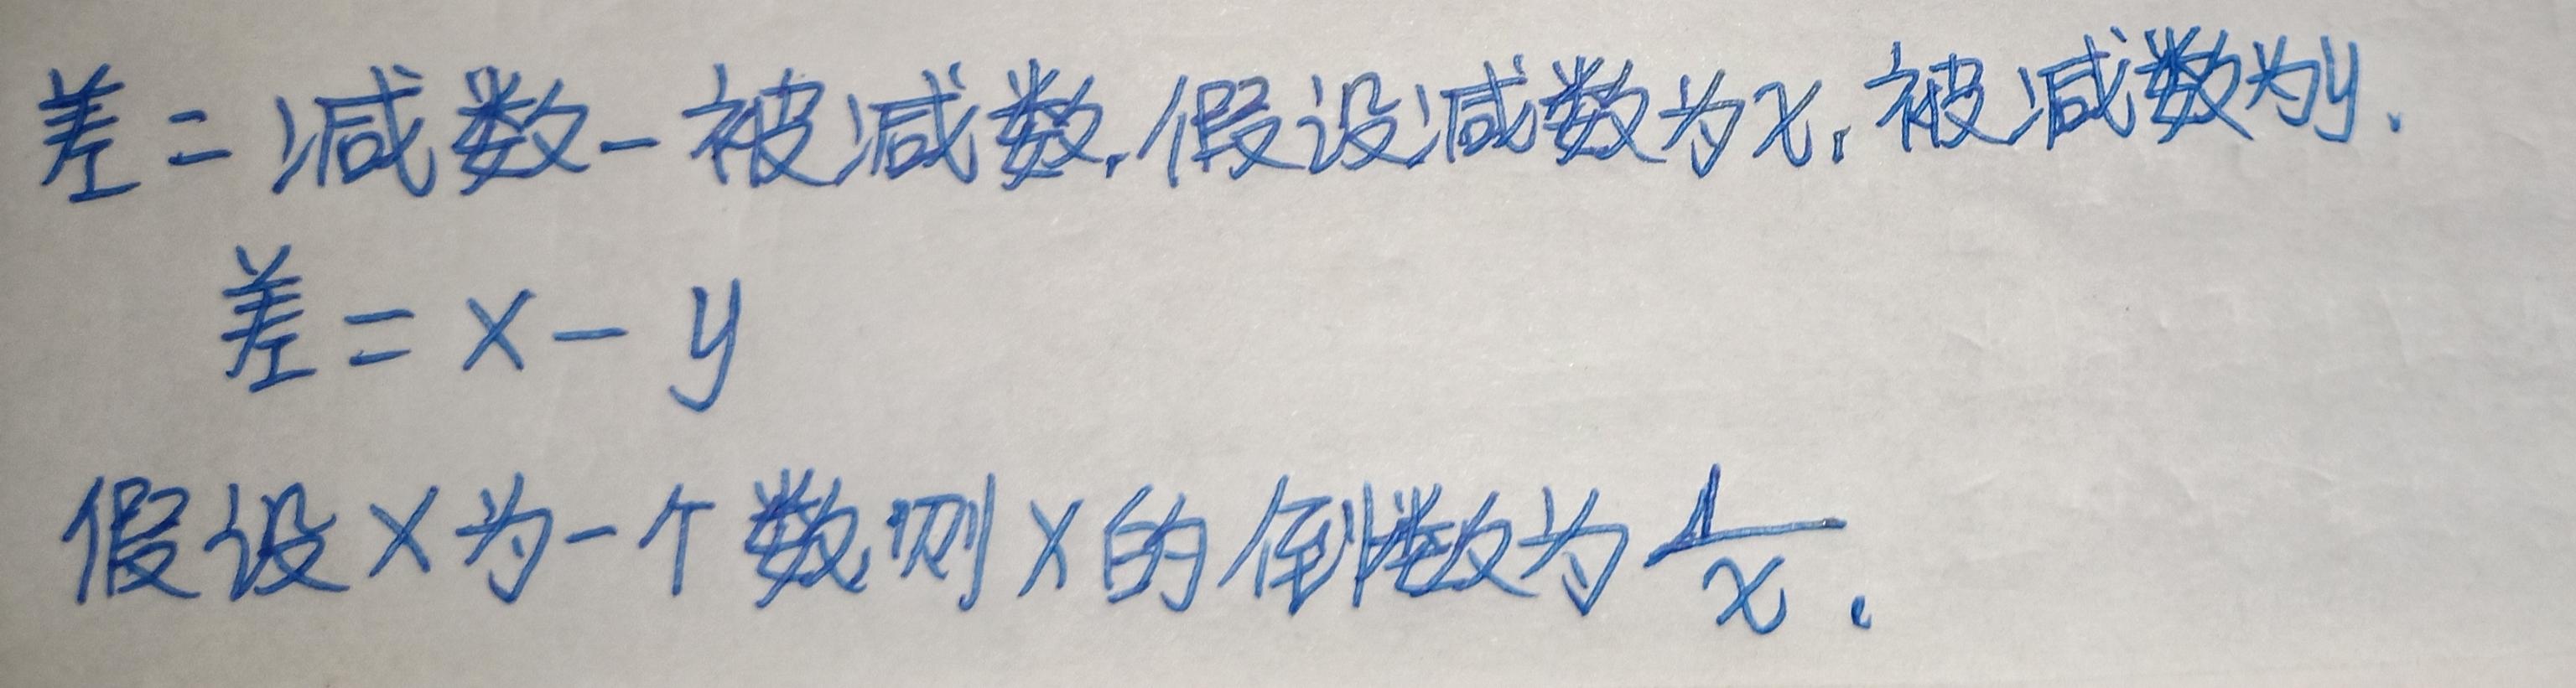 差=减数-被减数,假设减数为x,被减数为y.
差=x-y
假设x为一个数,则x的倒数为1/x.